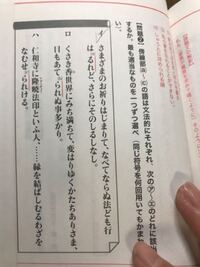 【問題❷】傍線部ⓐ~ⓒの語は文法的にそれぞれ、次の㋐~㋓のどれに該当
するか。最も適当なものを一つずつ選べ(同じ符号を何回用いてもかまわ
い)。
イ さまざまのお祈りはじまりて、なべてならぬ法ども行
はるれど、さらにそのしるしなし。
ロ くさき香世界にみち満ちて、変はりゆくかたちありさま、
目もあてられぬ事多かり。
ハ 仁和寺に隆暁法印といふ人、……縁を結ばしむるわざを
なむせられける。